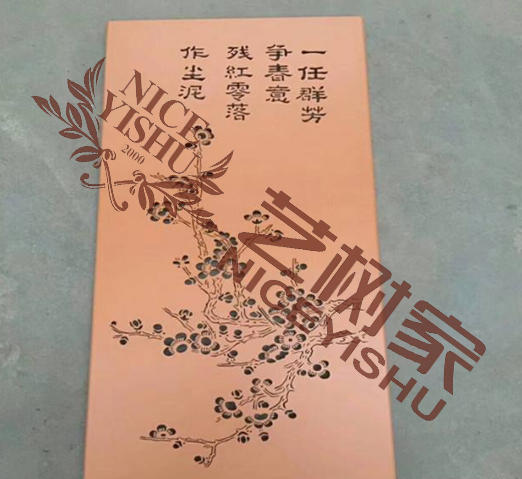 一任群芳
争春意
残红零落
作尘泥
NICE
YISHU
2000
艺树家
NICEYISHU